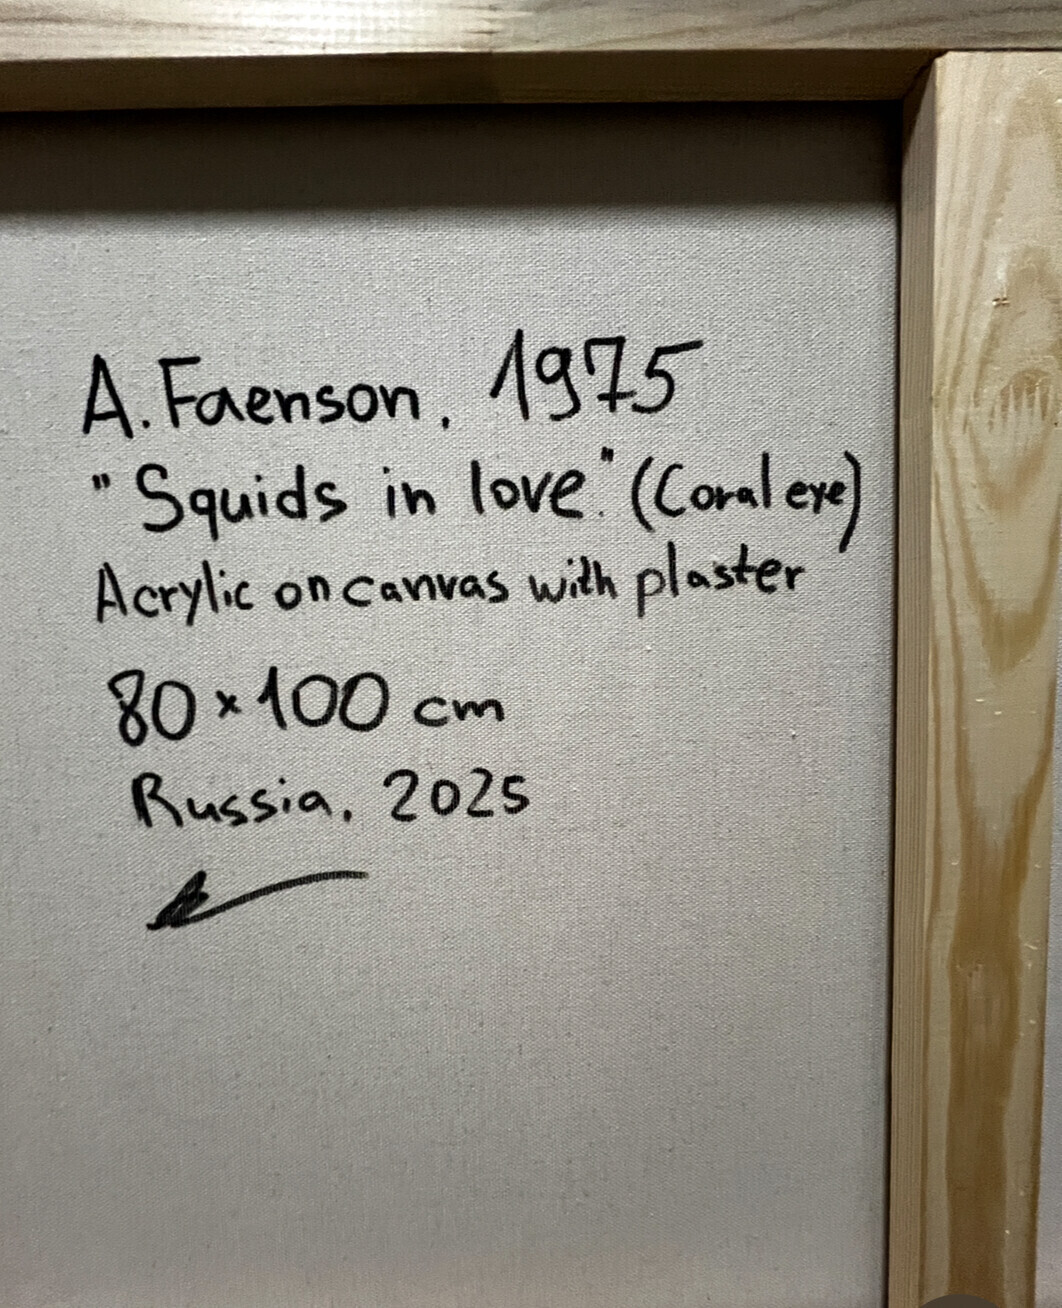 A. Faenson, 1975
"Squids in love." (Coral eye)
Acrylic on canvas with plaster
80 × 100 cm
Russia, 2025